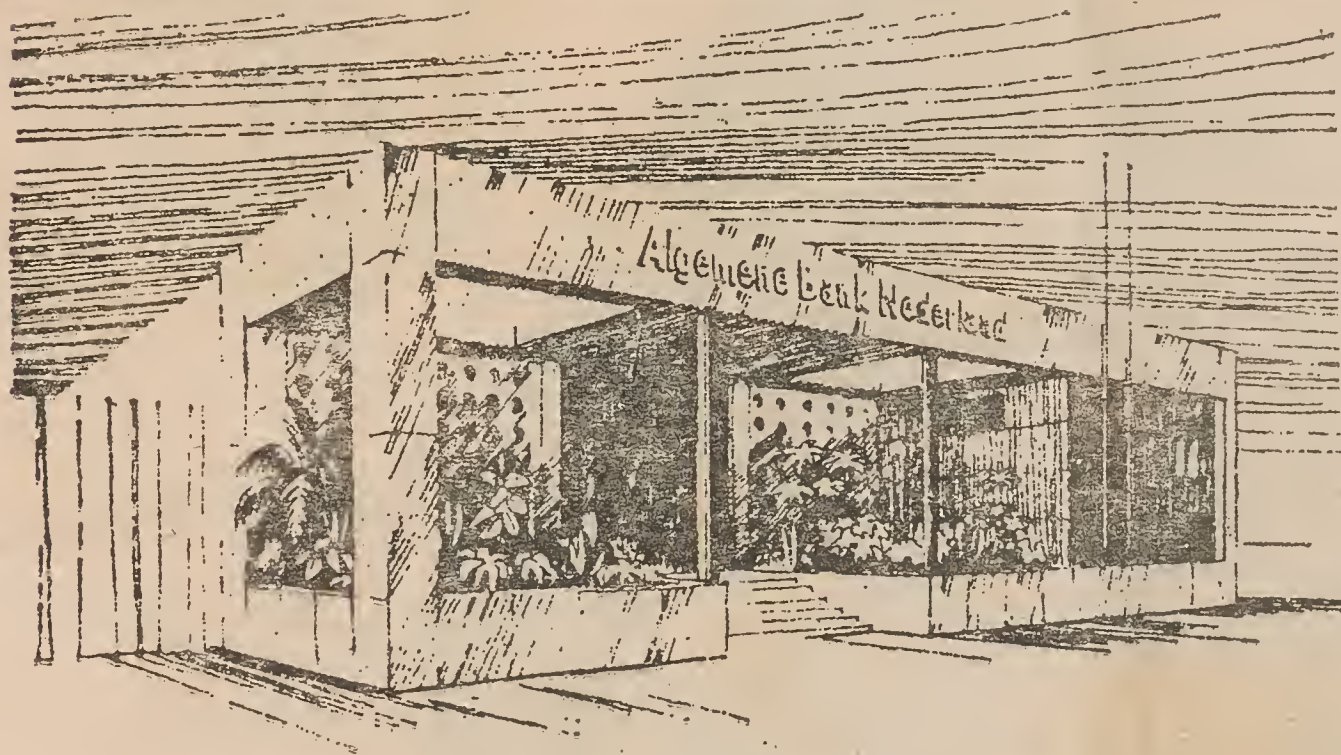 Algemene Bank Nederland